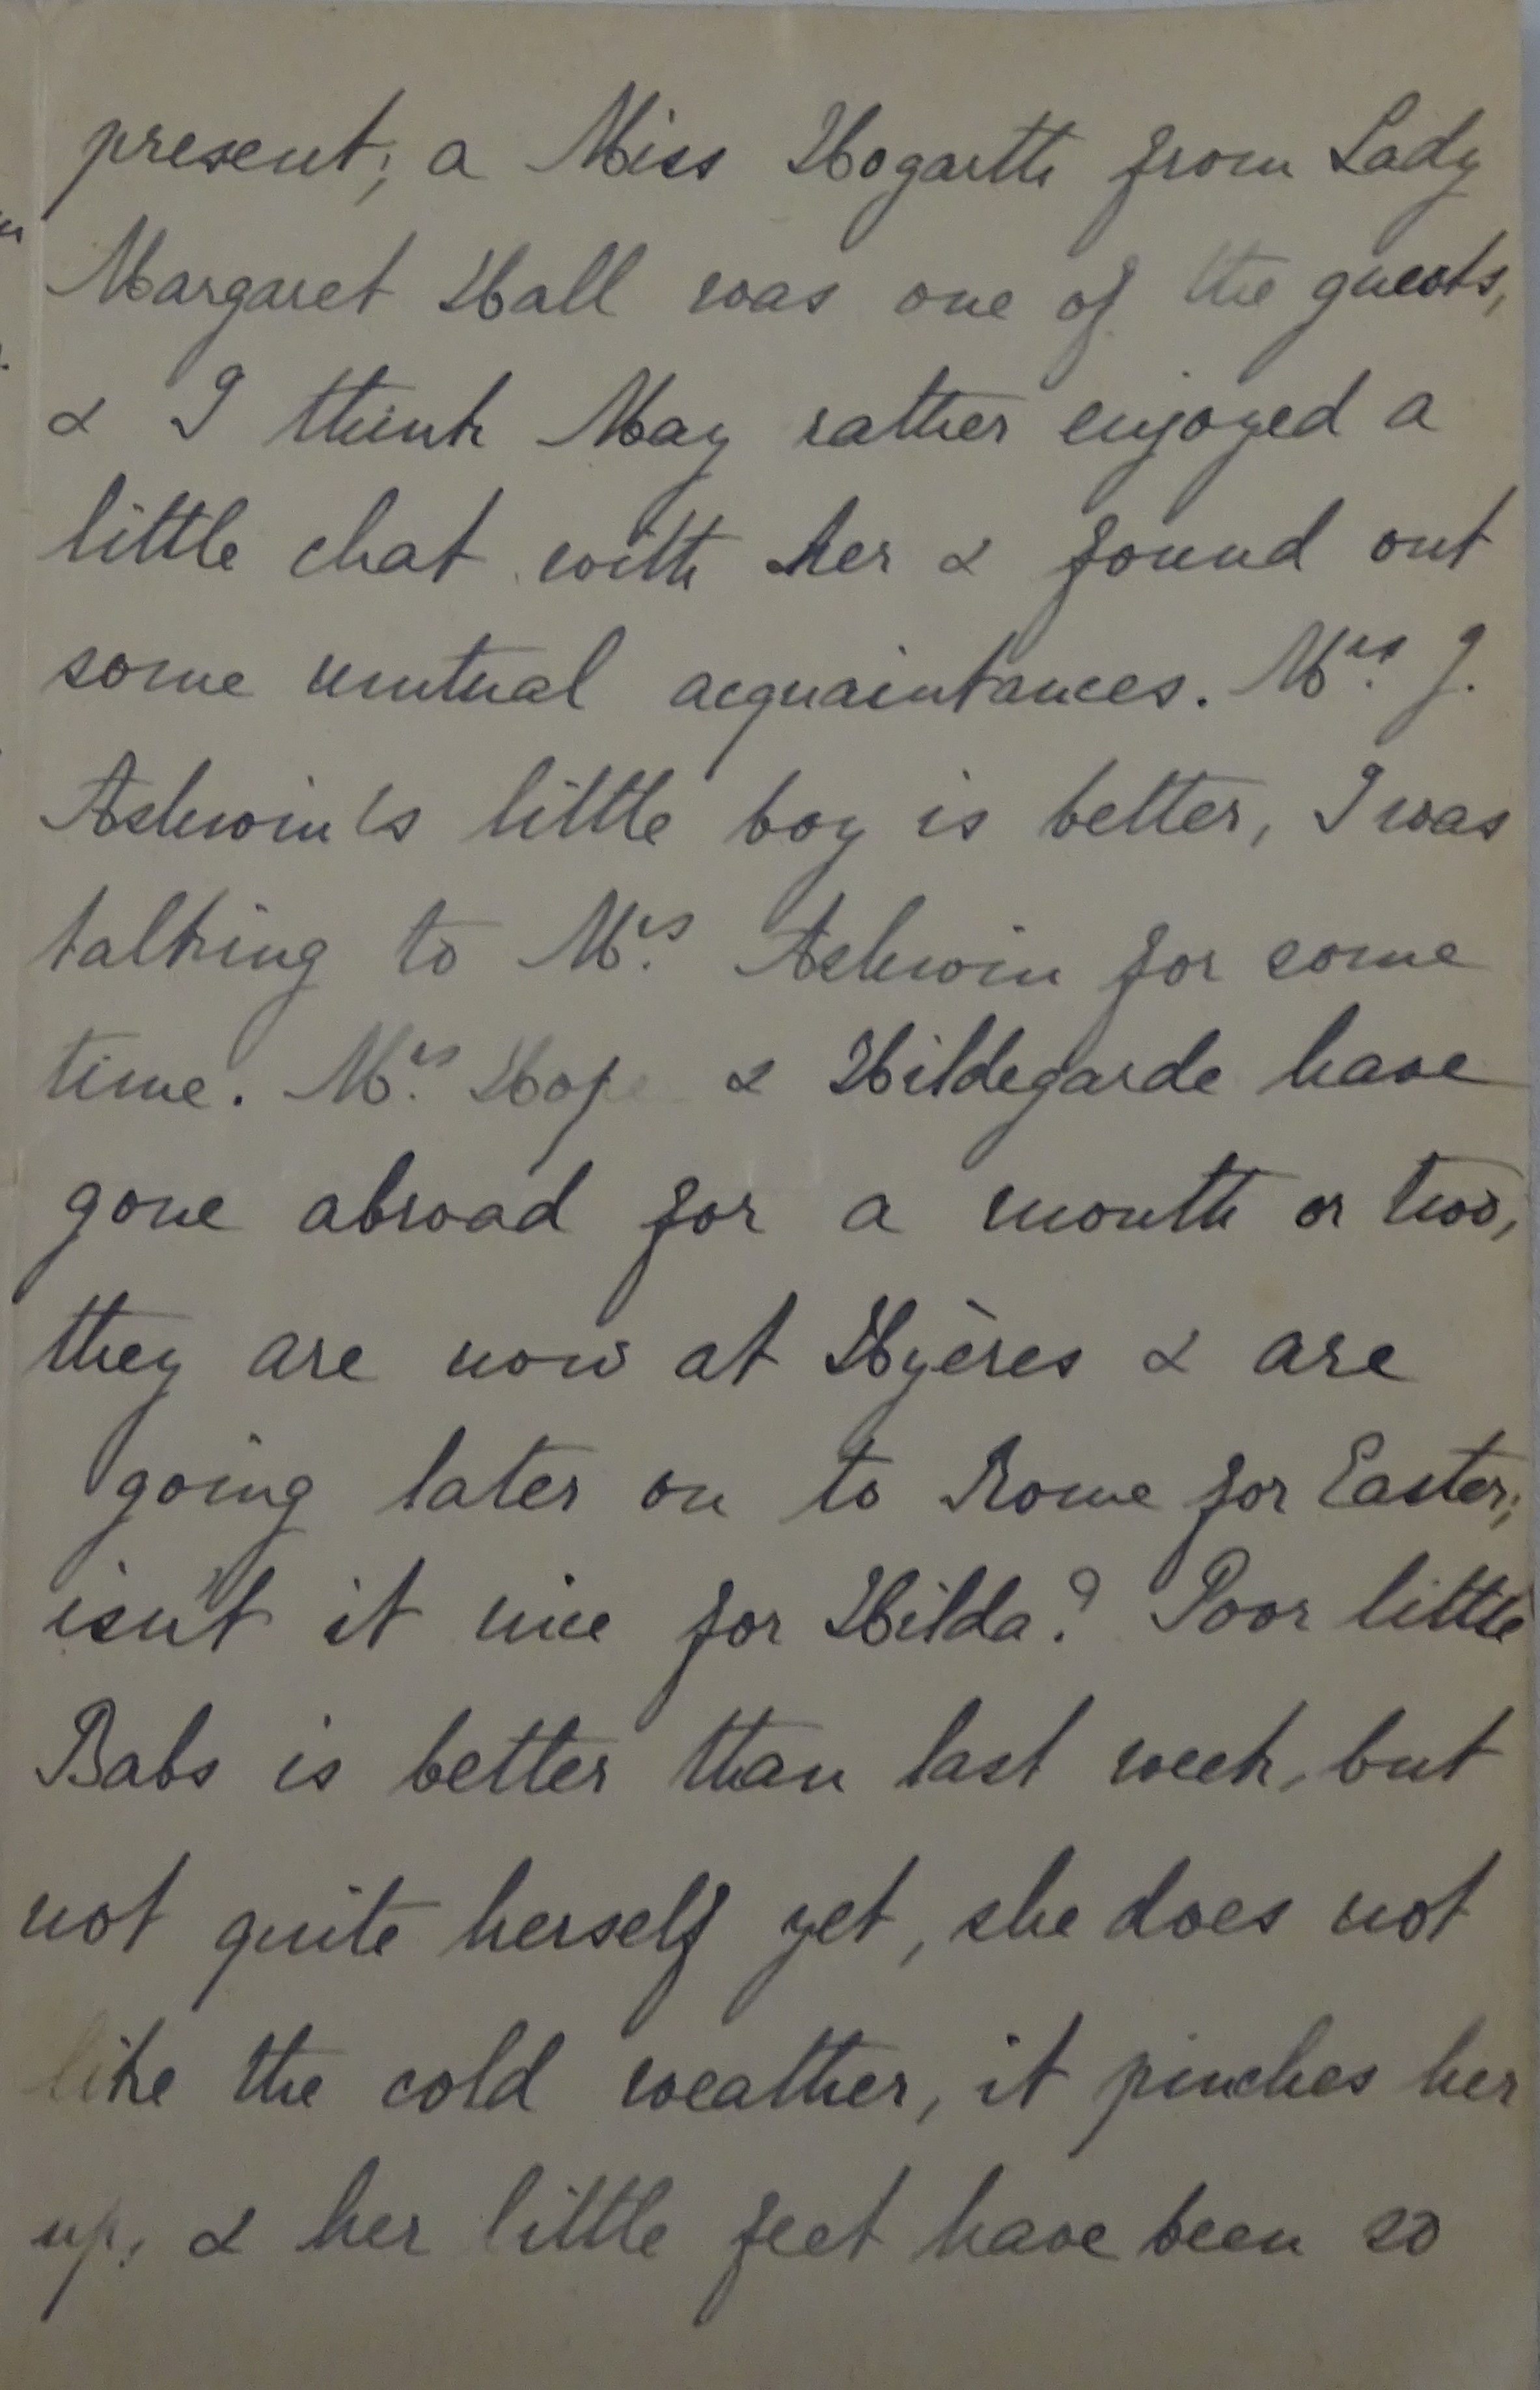 present; a Miss Hogarth from Lady
Margaret Hall was one of the guests,
& I think May rather enjoyed a
little chat with her & found out
some mutual acquaintances. Mrs. J.
Ashwin's little boy is better, I was
talking to Mrs. Ashwin for some
time. Mrs. Hope & Hildegarde have
gone abroad for a month or two,
they are now at Hyères & are
going later on to Rome for Easter;
isn't it nice for Hilda? Poor little
Babs is better than last week, but
not quite herself yet, she does not
like the cold weather, it pinches her
up, & her little feet have been so